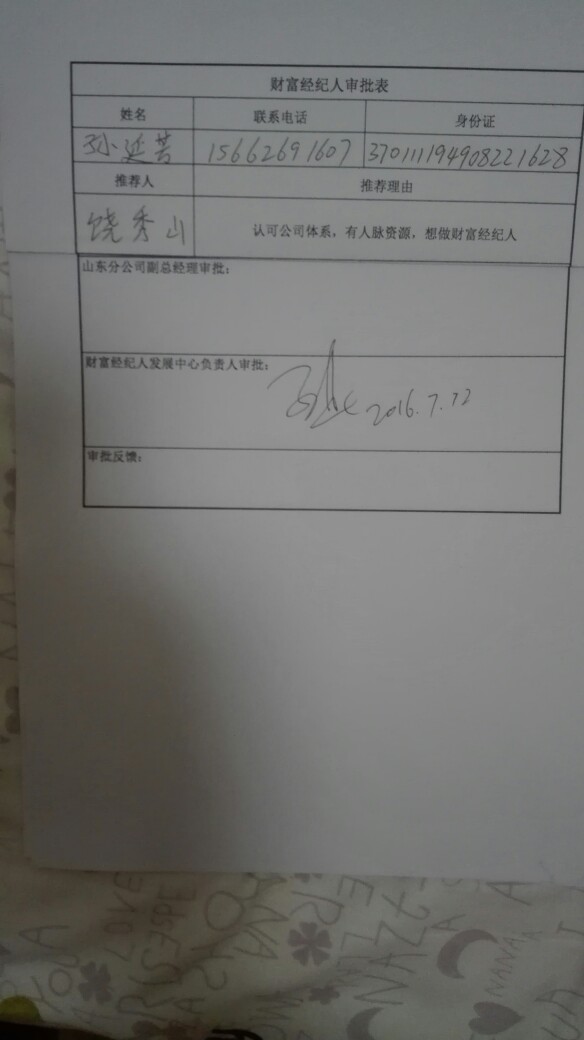 财富经纪人审批表
姓名 联系电话 身份证
孙延芸 15662691607 370111194908221628
推荐人 推荐理由
饶秀山 认可公司体系，有人脉资源，想做财富经纪人
山东分公司副总经理审批：
财富经纪人发展中心负责人审批：
2016.7.12
审批反馈：